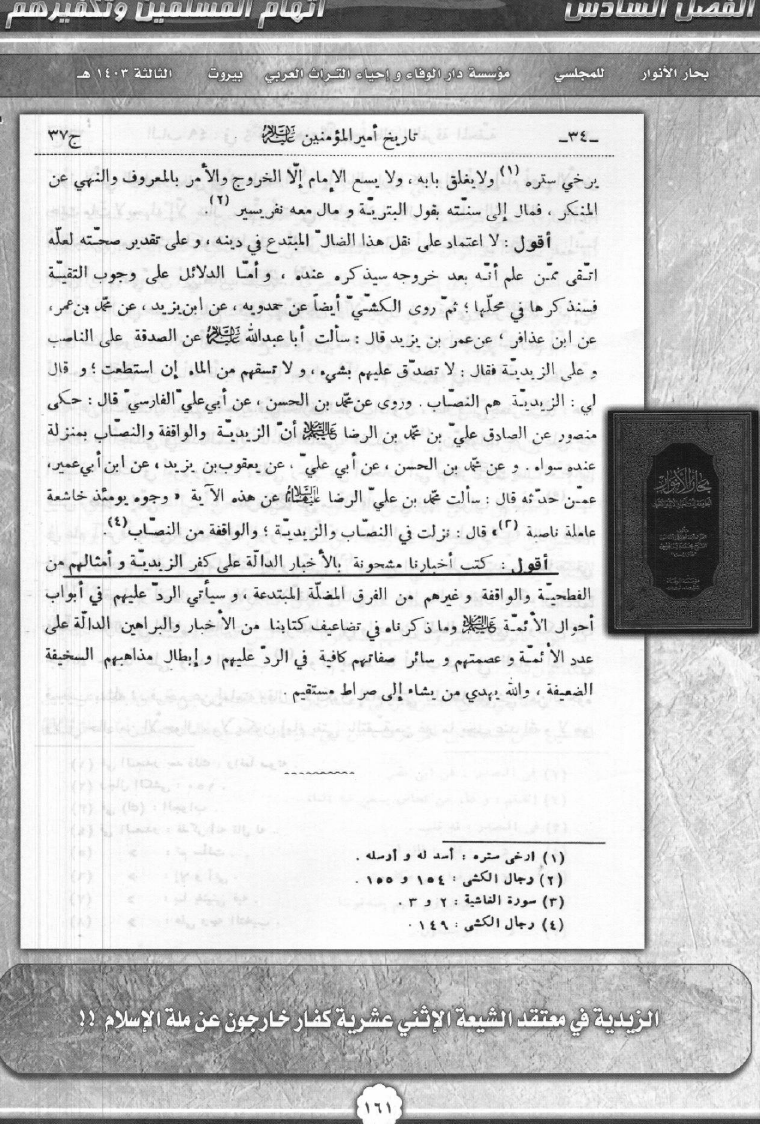 الفصل السادس
اتهام المسلمين وتكفيرهم
بحار الأنوار للمجلسي مؤسسة دار الوفاء و إحياء التراث العربي بيروت الثالثة ١٤٠٣ هـ
ـ٣٤ـ تاريخ أمير المؤمنين عليه السلام ج٣٧
يرخي ستره (١) ولايغلق بابه ، ولا يسع الإمام إلّا الخروج والأمر بالمعروف والنهي عن
المنكر ، فمال إلى سنّته بقول البتريّة و مال معه نفر يسير (٢).
أقول : لا اعتماد على نقل هذا الضالّ المبتدع في دينه ، و على تقدير صحّته لعلّه
اتّقى ممّن علم أنّه بعد خروجه سيذكره عنده ، و أمّا الدلائل على وجوب التقيّة
فسنذكرها في محلّها ؛ ثمّ روى الكشّيّ أيضاً عن حمدويه ، عن ابن يزيد ، عن محمّد بن عمر،
عن ابن عذافر ؛ عن عمر بن يزيد قال : سألت أبا عبدالله عليه السلام عن الصدقة على الناصب
و على الزيديّة فقال : لا تصدّق عليهم بشيء ، و لا تسقهم من الماء إن استطعت ؛ و قال
لي : الزيديّة هم النصّاب . وروى عن محمّد بن الحسن ، عن أبي عليّ الفارسيّ قال : حكى
منصور عن الصادق عليّ بن محمّد بن الرضا عليهم السلام أنّ الزيديّة والواقفة والنصّاب بمنزلة
عنده سواء . و عن محمّد بن الحسن ، عن أبي عليّ ، عن يعقوب بن يزيد ، عن ابن أبي عمير،
عمّن حدّثه قال : سألت محمّد بن عليّ الرضا عليهما السلام عن هذه الآية « وجوه يومئذ خاشعة
عاملة ناصبة (٣)» قال : نزلت في النصّاب والزيديّة ؛ والواقفة من النصّاب (٤)
أقول : كتب أخبارنا مشحونة بالأخبار الدالّة على كفر الزيديّة و أمثالهم من
الفطحيّة والواقفة و غيرهم من الفرق المضلّة المبتدعة ، و سيأتي الردّ عليهم في أبواب
أحوال الأئمّة عليهم السلام وما ذكرناه في تضاعيف كتابنا من الأخبار والبراهين الدالّة على
عدد الأئمّة و عصمتهم و سائر صفاتهم كافية في الردّ عليهم و إبطال مذاهبهم السخيفة
الضعيفة ، والله يهدي من يشاء إلى صراط مستقيم .
(١) ارخى ستره : أسد له و أرسله .
(٢) رجال الكشى : ١٥٤ و ١٥٥ .
(٣) سورة الغاشية : ٢ و ٣ .
(٤) رجال الكشى : ١٤٩ .
بحار الأنوار
الزيدية في معتقد الشيعة الإثني عشرية كفار خارجون عن ملة الإسلام !!
١٦١